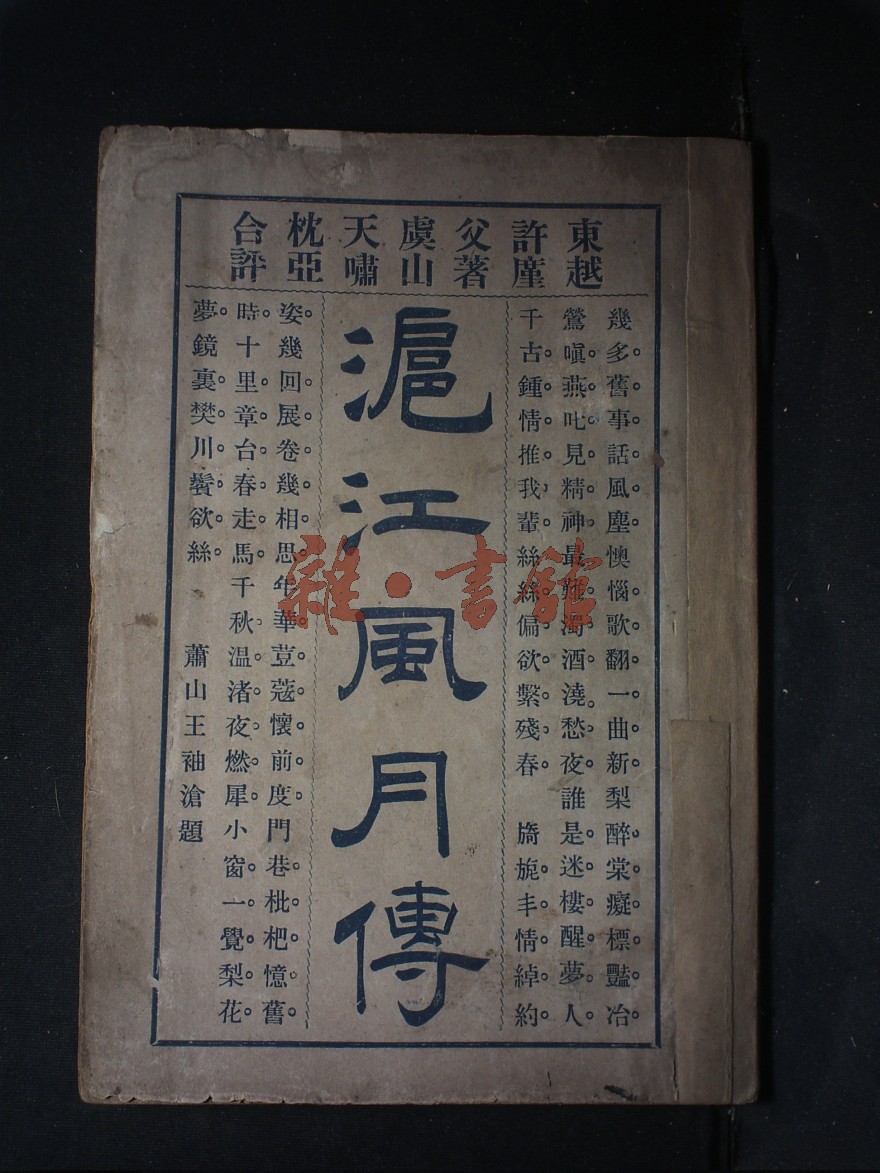 東越
許廑
父著
虞山
天嘯
枕亞
合評
幾多舊事話風塵懊惱歌翻一曲新梨醉棠癡標豔冶
鶯嗔燕叱見精神最難濁酒澆愁夜誰是迷樓醒夢人
千古鍾情推我輩絲絲偏欲繫殘春 旖旎丰情綽約
滬江風月傳
姿幾回展卷幾相思年華荳蔻懷前度門巷枇杷憶舊
時十里章台春走馬千秋温渚夜燃犀小窗一覺梨花
夢鏡裏樊川鬢欲絲 蕭山王袖滄題
雜·書館